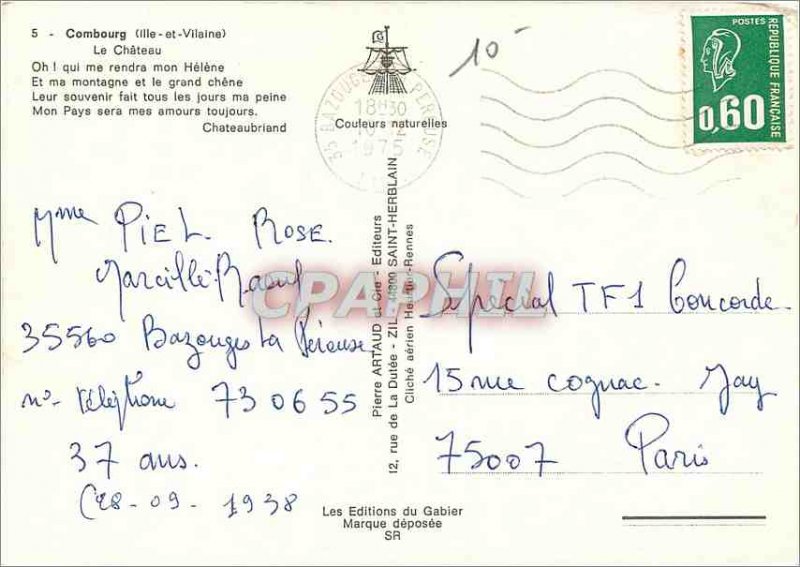 5 - Combourg (Ille-et-Vilaine)
Le Château
Oh! qui me rendra mon Hélène
Et ma montagne et le grand chêne
Leur souvenir fait tous les jours ma peine
Mon Pays sera mes amours toujours.
Chateaubriand
Couleurs naturelles
10-
POSTES
REPUBLIQUE FRANÇAISE
0,60
35 BAZOUGES PEROUSE
18H30
1975
Mme PIEL. ROSE.
Marcillé-Raoul
35560 Bazouges La Pérouse
no- téléphone 730655
37 ans.
(28-09-1938
Pierre ARTAUD et Cie - Editeurs
12, rue de La Dutée - ZIL 44800 SAINT-HERBLAIN
Cliché aérien Heurtier-Rennes
CPAPHIL
Spécial TF1 Concorde
15 rue cognac-Jay
75007 Paris
Les Editions du Gabier
Marque déposée
SR